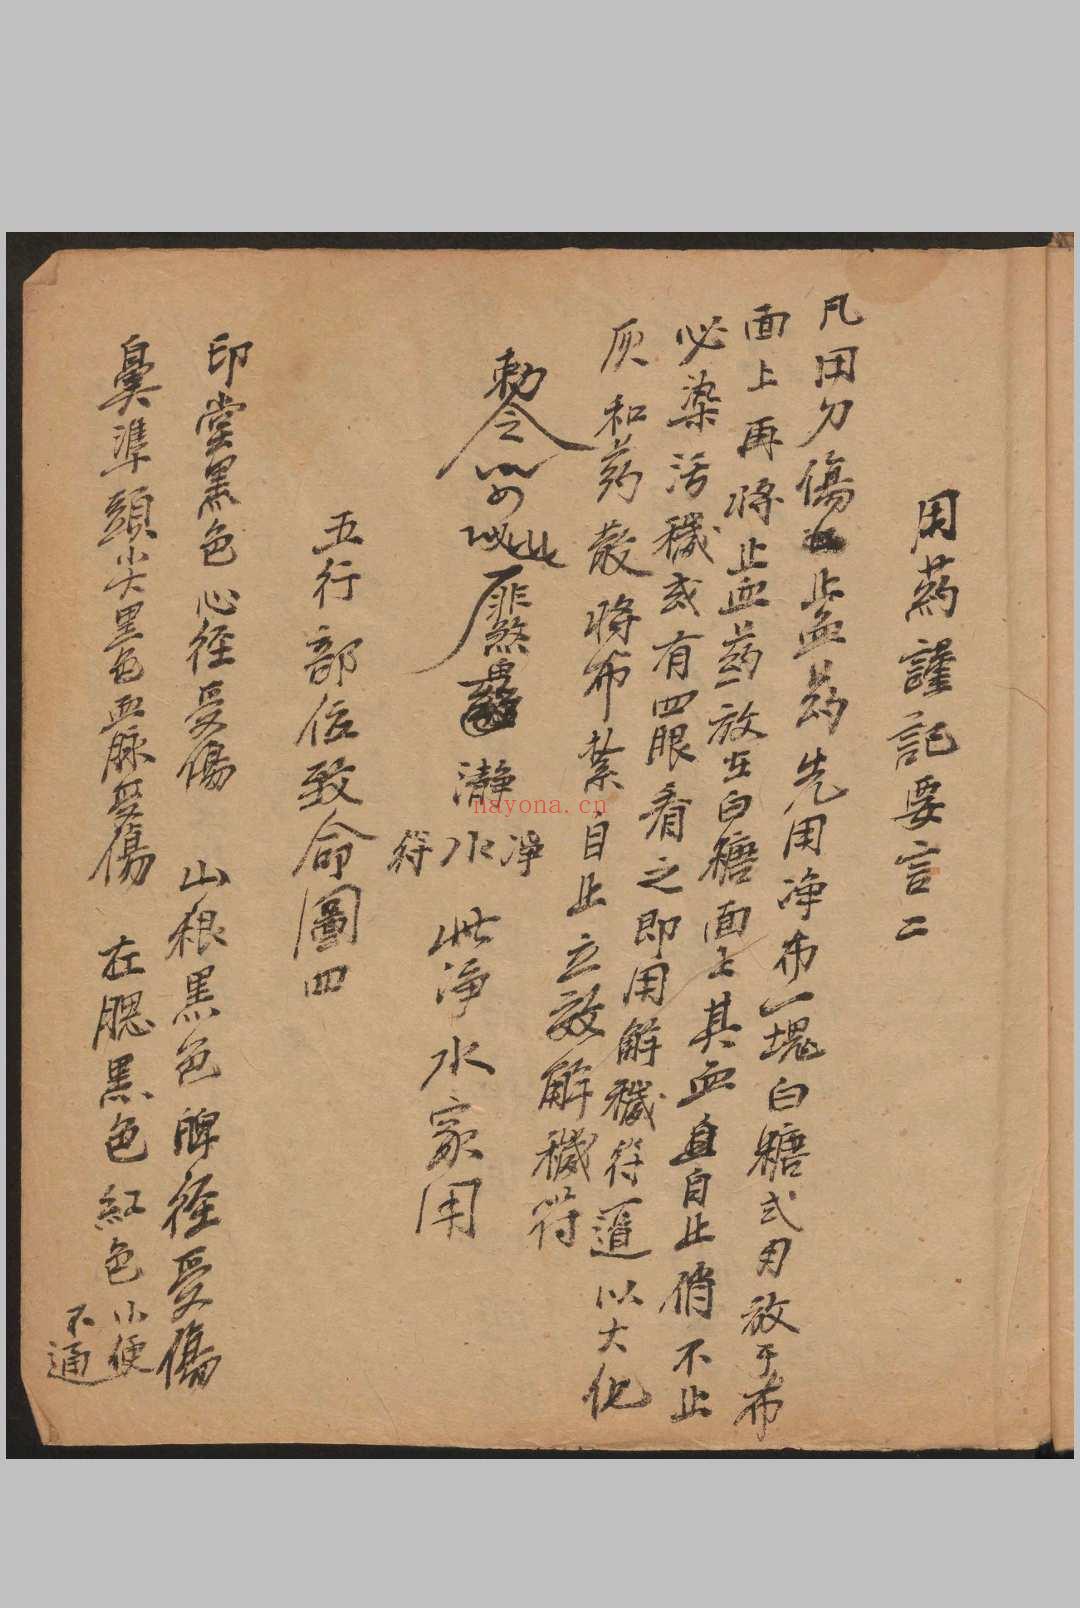 用药謹記要言二
凡田刀傷止血药先用净布一塊白糖弍匁放于布
面上再将止血药放在白糖面上其血自止偹不止
必染污穢或有四眼看之即用解穢符一道以火化
灰和药散将布紮自止立效解穢符
勅令
瀞
净水符
此净水家用
五行部位致命圖四
印堂黑色心徑受傷 山根黑色脾徑受傷
鼻準頭尖黑色血脉受傷 在腮黑色紅色小便不通
nayona.cn